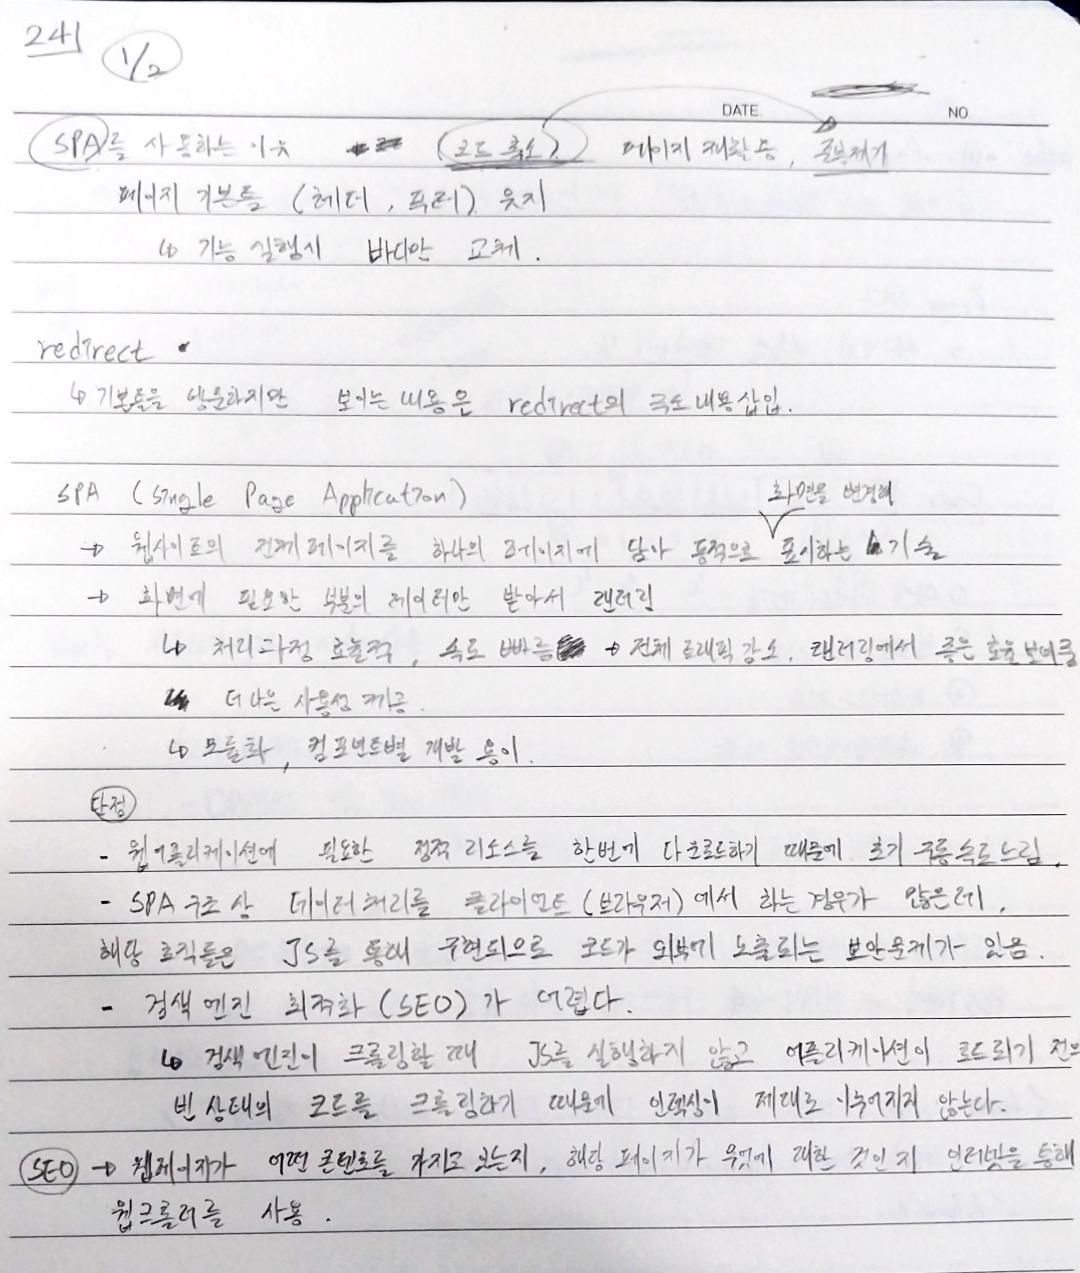 241
1/2
DATE. NO
SPA를 사용하는 이유 (코드 축소) 페이지 재활용,
페이지 기본틀 (헤더, 푸터) 유지
↳ 기능 실행시 바디만 교체.
redirect
↳ 기본틀을 방문하지만 보이는 내용은 redirect의 주소 내용삽입.
SPA (Single Page Application)
화면을 변경해
→ 웹사이트의 전체페이지를 하나의 페이지에 담아 동적으로 표시하는 기술
→ 화면에 필요한 부분의 데이터만 받아서 랜더링
↳ 처리과정 효율적, 속도 빠름 → 전체 트래픽 감소, 랜더링에서 좋은 효율 보여줌
더 나은 사용성 제공.
↳ 모듈화, 컴포넌트별 개발 용이.
단점
- 웹어플리케이션에 필요한 정적 리소스를 한번에 다운로드하기 때문에 초기 구동속도느림.
- SPA 구조 상 데이터처리를 클라이언트(브라우저)에서 하는 경우가 많은데,
해당 로직들은 JS를 통해 구현되므로 코드가 외부에 노출되는 보안문제가 있음.
- 검색 엔진 최적화 (SEO)가 어렵다.
↳ 검색엔진이 크롤링할 때 JS를 실행하지 않고 어플리케이션이 로드되기 전의
빈 상태의 코드를 크롤링하기 때문에 인덱싱이 제대로 이루어지지 않는다.
SEO → 웹페이지가 어떤 콘텐츠를 가지고 있는지, 해당 페이지가 무엇에 대한 것인지 인터넷을 통해
웹크롤러를 사용.